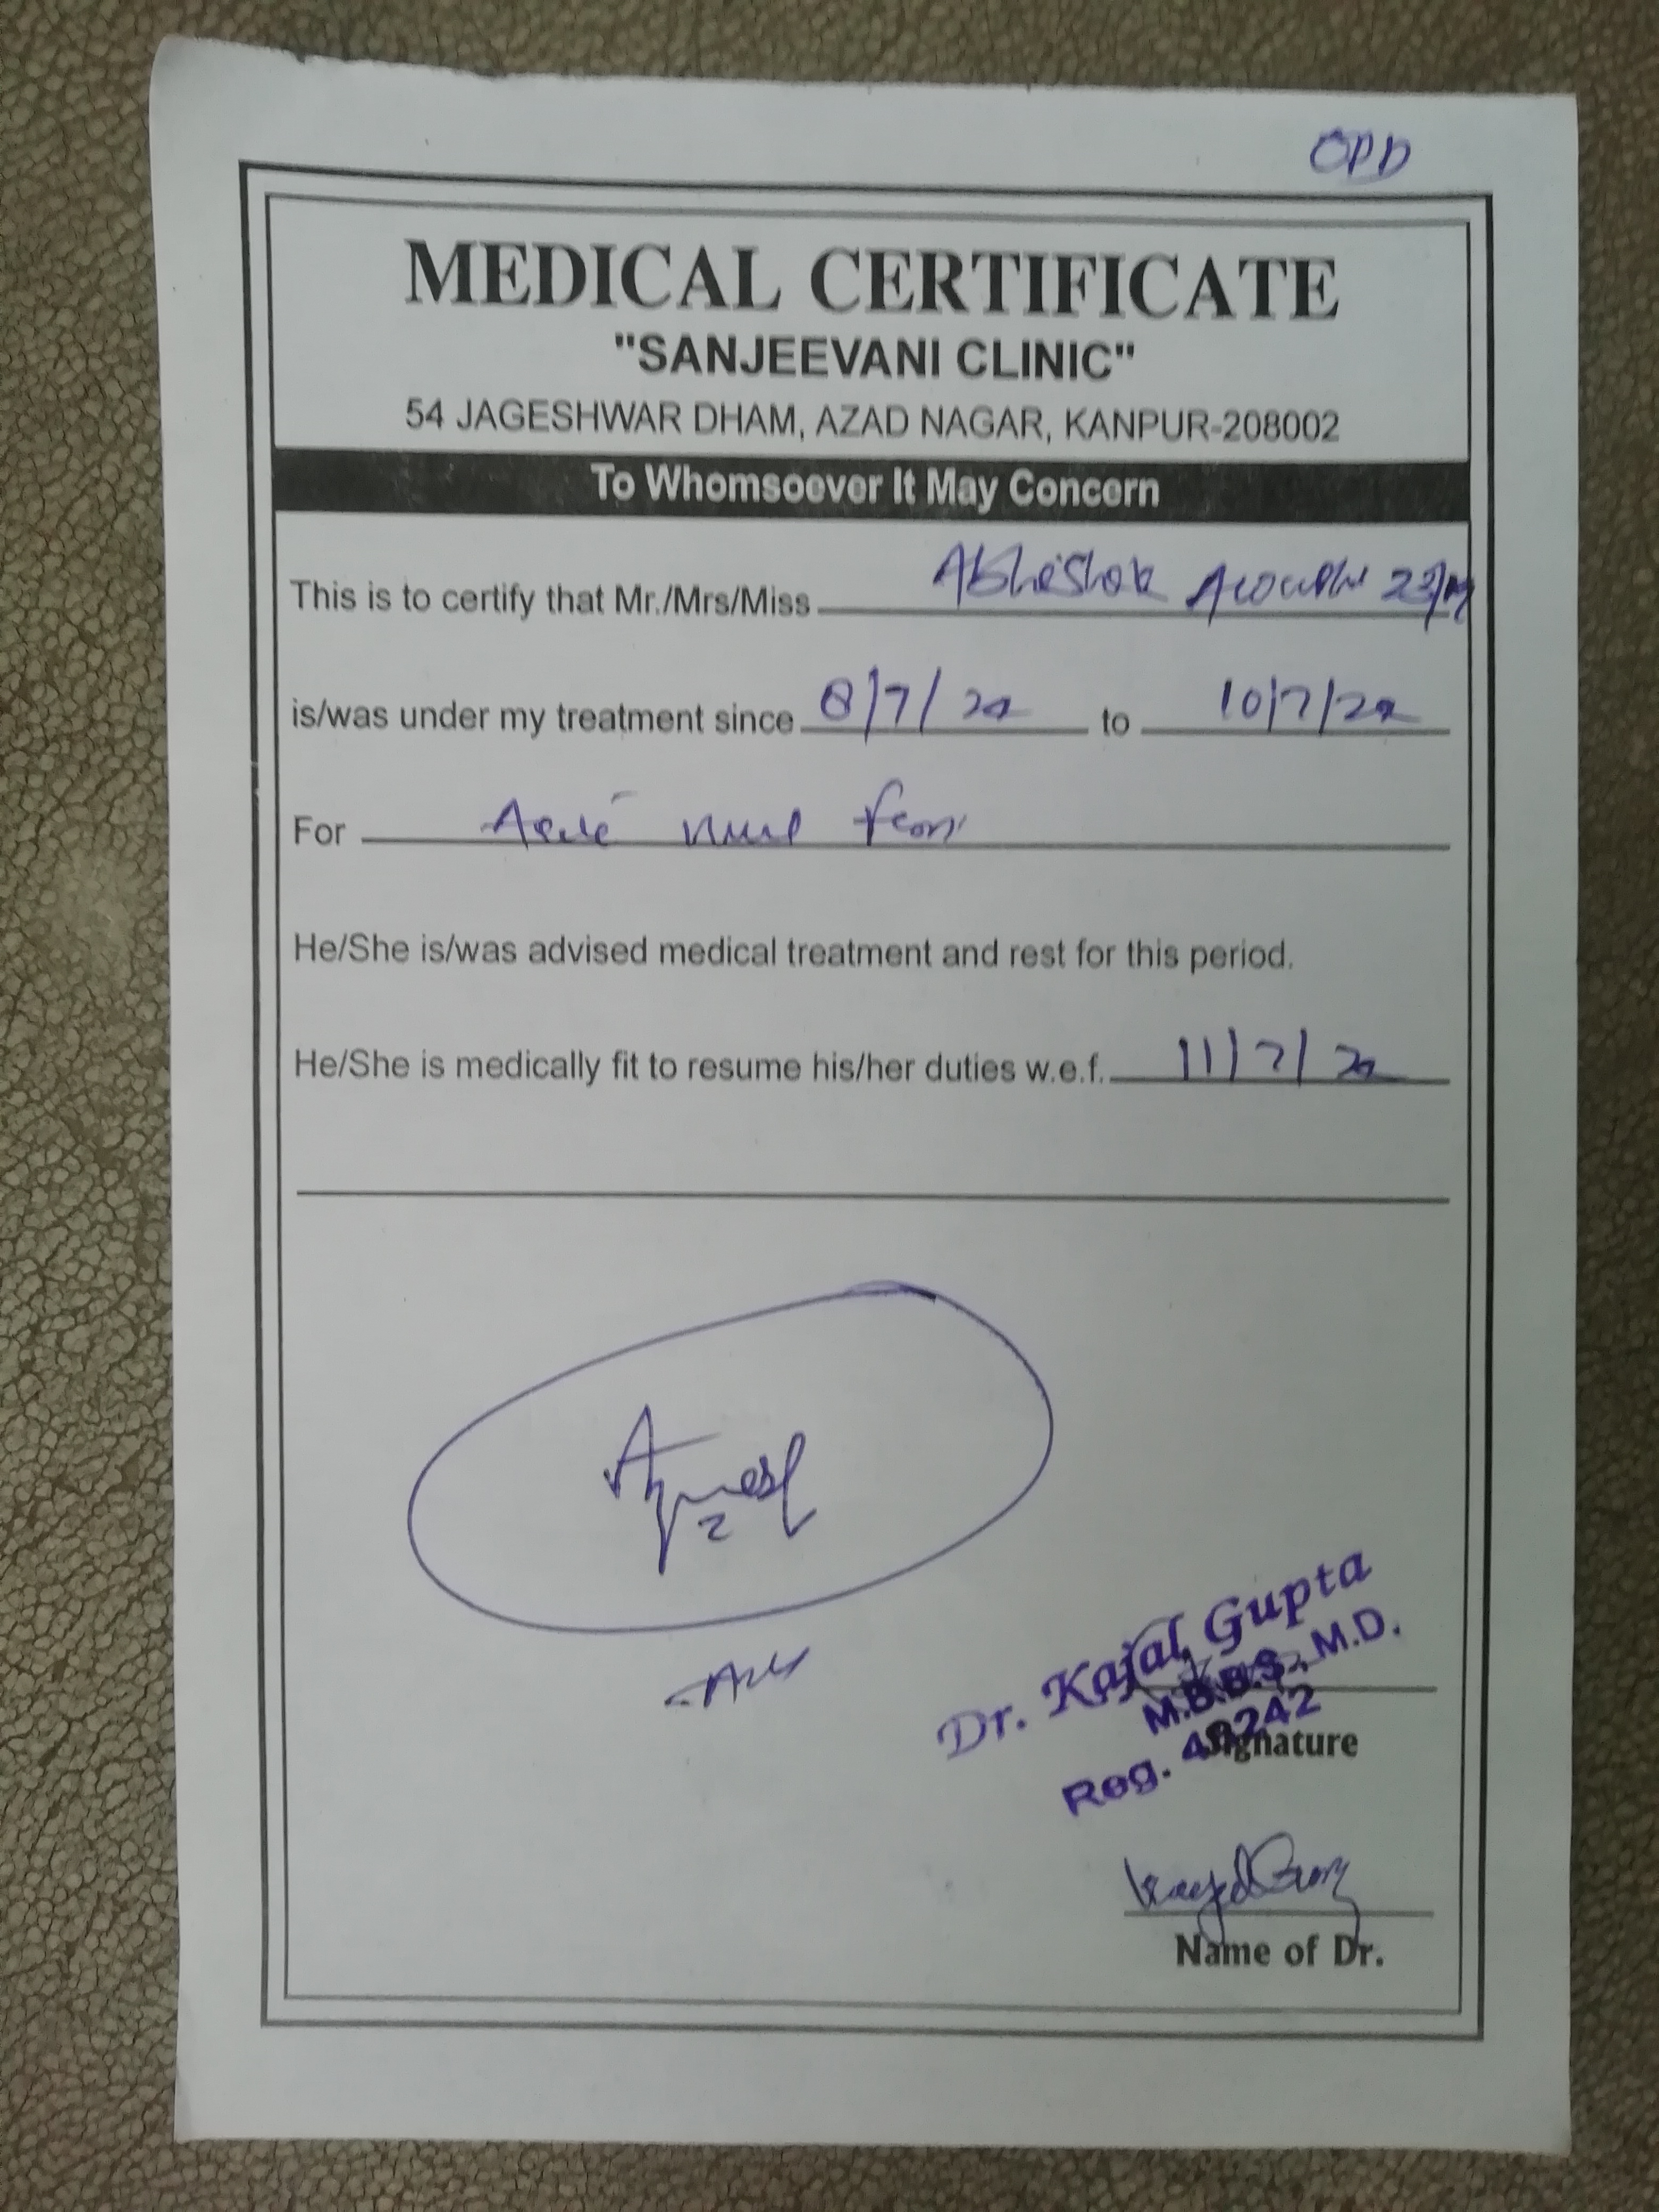 OPD
MEDICAL CERTIFICATE
"SANJEEVANI CLINIC"
54 JAGESHWAR DHAM, AZAD NAGAR, KANPUR-208002
To Whomsoever It May Concern
This is to certify that Mr./Mrs/Miss Abhishek
is/was under my treatment since 8/7/22 to 10/7/22
For
He/She is/was advised medical treatment and rest for this period.
He/She is medically fit to resume his/her duties w.e.f. 11/7/22
Dr. Kajal Gupta
M.B.B.S., M.D.
Signature
Reg.
Name of Dr.